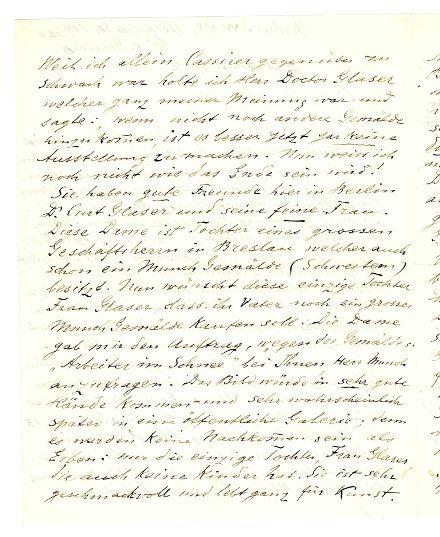 Weil ich allein Cassirer gegenüber zu
schwach war holte ich Herr Doctor Glaser
welcher ganz meiner Meinung war und
sagte: wenn nicht noch andere Gemälde
hinzukom̄en, ist es besser jetzt gar keine
Ausstellung zu machen. Nun weiss ich
noch nicht wie das Ende sein wird!
Sie haben gute Freunde hier in Berlin
Dr Curt Glaser und seine feine Frau.
Diese Dame ist Tochter eines grossen
Geschäftsherrn in Breslau welcher auch
schon ein Munch Gemälde (Schwestern)
besitzt. Nun wünscht diese einzige Tochter
Frau Glaser, dass ihr Vater noch ein grosses
Munch Gemälde kaufen soll. Die Dame
gab mir den Auftrag, wegen des Gemäldes
„Arbeiter im Schnee" bei Ihnen Herr Munch
anzufragen. Das Bild würde in sehr gute
Hände kommen und sehr wahrscheinlich
später in eine öffentliche Galerie, denn
es werden keine Nachkom̄en sein als
Erben: nur die einzige Tochter, Frau Glaser
die auch keine Kinder hat. Sie ist sehr
geschmackvoll und lebt ganz für Kunst.